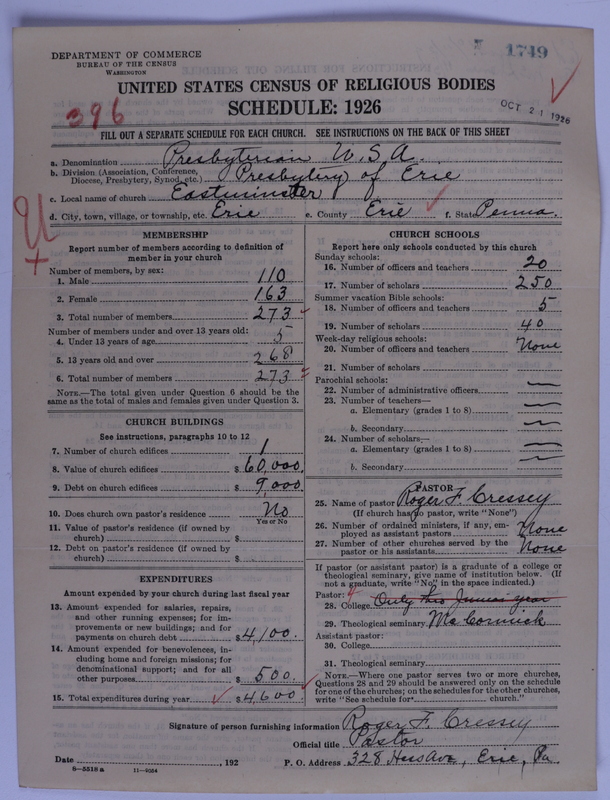 DEPARTMENT OF COMMERCE
BUREAU OF THE CENSUS
WASHINGTON
1749
UNITED STATES CENSUS OF RELIGIOUS BODIES
SCHEDULE: 1926
OCT 21 1926
396
FILL OUT A SEPARATE SCHEDULE FOR EACH CHURCH. SEE INSTRUCTIONS ON THE BACK OF THIS SHEET
a. Denomination Presbyterian U.S.A.
b. Division (Association, Conference, Diocese, Presbytery, Synod, etc.) Presbytery of Erie
c. Local name of church Eastminster
d. City, town, village, or township, etc. Erie e. County Erie f. State Penna.
MEMBERSHIP
Report number of members according to definition of
member in your church
Number of members, by sex:
1. Male 110
2. Female 163
3. Total number of members 273
Number of members under and over 13 years old:
4. Under 13 years of age 5
5. 13 years old and over 268
6. Total number of members 273
NOTE.—The total given under Question 6 should be
same as the total of males and females given under Question 3.
CHURCH BUILDINGS
See instructions, paragraphs 10 to 12
7. Number of church edifices 1
8. Value of church edifices $ 60,000.
9. Debt on church edifices $ 9,000
10. Does church own pastor's residence No
Yes or No
11. Value of pastor's residence (if owned by
church) $
12. Debt on pastor's residence (if owned by
church) $
EXPENDITURES
Amount expended by your church during last fiscal year
13. Amount expended for salaries, repairs,
and other running expenses; for im-
provements or new buildings; and for
payments on church debt $ 4,100.
14. Amount expended for benevolences, in-
cluding home and foreign missions; for
denominational support; and for all
other purposes $ 500.
15. Total expenditures during year $ 4,600
CHURCH SCHOOLS
Report here only schools conducted by this church
Sunday schools:
16. Number of officers and teachers 20
17. Number of scholars 250
Summer vacation Bible schools:
18. Number of officers and teachers 5
19. Number of scholars 40
Week-day religious schools:
20. Number of officers and teachers None
21. Number of scholars
Parochial schools:
22. Number of administrative officers
23. Number of teachers—
a. Elementary (grades 1 to 8)
b. Secondary
24. Number of scholars—
a. Elementary (grades 1 to 8)
b. Secondary
PASTOR
25. Name of pastor Roger F. Cressey
(If church has no pastor, write "None")
26. Number of ordained ministers, if any, em-
ployed as assistant pastors None
27. Number of other churches served by the
pastor or his assistants None
If pastor (or assistant pastor) is a graduate of a college or
theological seminary, give name of institution below. (If
not a graduate, write "No" in the space indicated.)
Pastor:
28. College Only thro Junior year
29. Theological seminary McCormick
Assistant pastor:
30. College
31. Theological seminary
NOTE.—Where one pastor serves two or more churches,
Questions 28 and 29 should be answered only on the schedule
for one of the churches; on the schedules for the other churches,
write "See schedule for church."
Signature of person furnishing information Roger F. Cressey
Official title Pastor
Date , 192 P. O. Address 328 Hess Ave, Erie, Pa
8—5518 a 11—9054